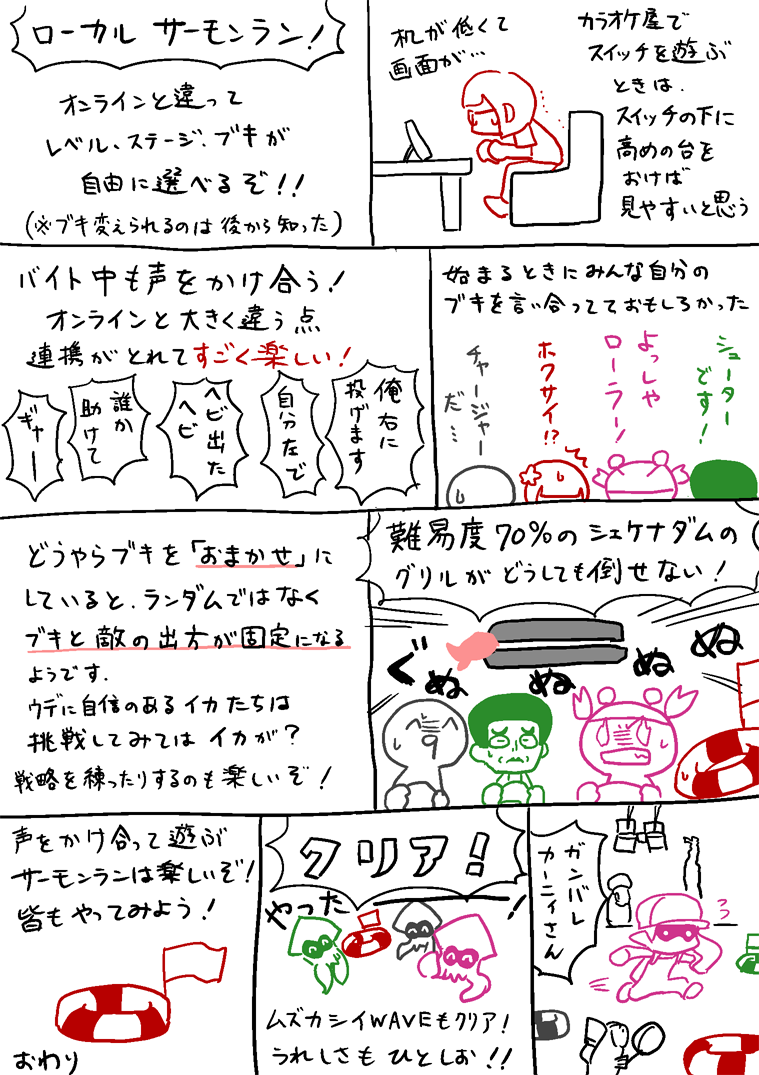 カラオケ屋で
スイッチを遊ぶ
ときは、
スイッチの下に
高めの台を
おけば
見やすいと思う
机が低くて
画面が…
ローカル サーモンラン!
オンラインと違って
レベル、ステージ、ブキが
自由に選べるぞ!!
(※ブキ変えられるのは後から知った)
始まるときにみんな自分の
ブキを言い合ってておもしろかった
シューター
です!
よっしゃ
ローラー!
ホクサイ!?
チャージャー
だ…
バイト中も声をかけ合う!
オンラインと大きく違う点
連携がとれてすごく楽しい!
俺右に
投げます
自分左で
ヘビ出た
ヘビ
誰か
助けて
ギャー
難易度70%のシェケナダムの
グリルがどうしても倒せない!
ぐぬぬぬぬ
どうやらブキを「おまかせ」に
していると、ランダムではなく
ブキと敵の出方が固定になる
ようです.
ウデに自信のあるイカたちは
挑戦してみてはイカが?
戦略を練ったりするのも楽しいぞ!
ガンバレ
カーニィさん
クリア!
やったー!
ムズカシイWAVEもクリア!
うれしさもひとしお!!
声をかけ合って遊ぶ
サーモンランは楽しいぞ!
皆もやってみよう!
おわり